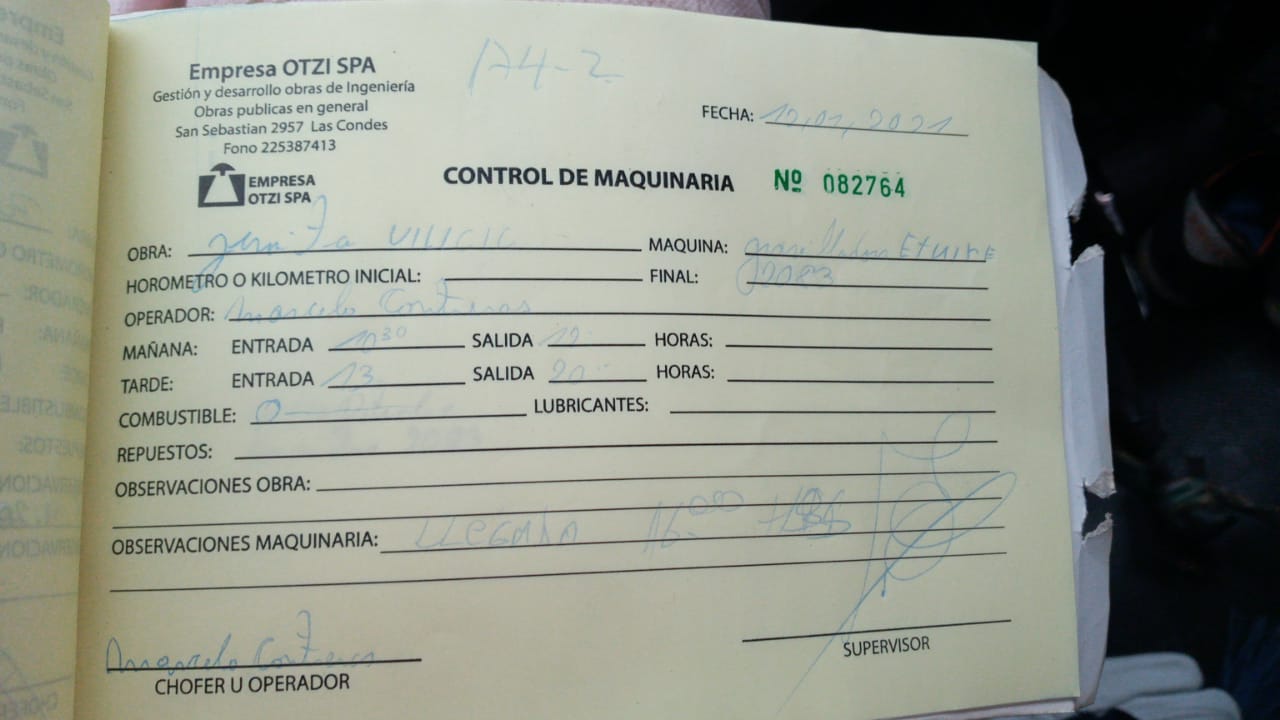 Empresa OTZI SPA
Gestión y desarrollo obras de Ingeniería
Obras publicas en general
San Sebastian 2957 Las Condes
Fono 225387413
EMPRESA
OTZI SPA
A4-2
FECHA: 12,01,2021
CONTROL DE MAQUINARIA Nº 082764
OBRA: VILICIC MAQUINA:
HOROMETRO O KILOMETRO INICIAL: FINAL:
OPERADOR: Marcelo Contreras
MAÑANA: ENTRADA 10 30 SALIDA 12 HORAS:
TARDE: ENTRADA 13 SALIDA 20 HORAS:
COMBUSTIBLE: LUBRICANTES:
REPUESTOS:
OBSERVACIONES OBRA:
OBSERVACIONES MAQUINARIA: LLEGADA 16:00 HRS
Marcelo Contreras
CHOFER U OPERADOR
SUPERVISOR